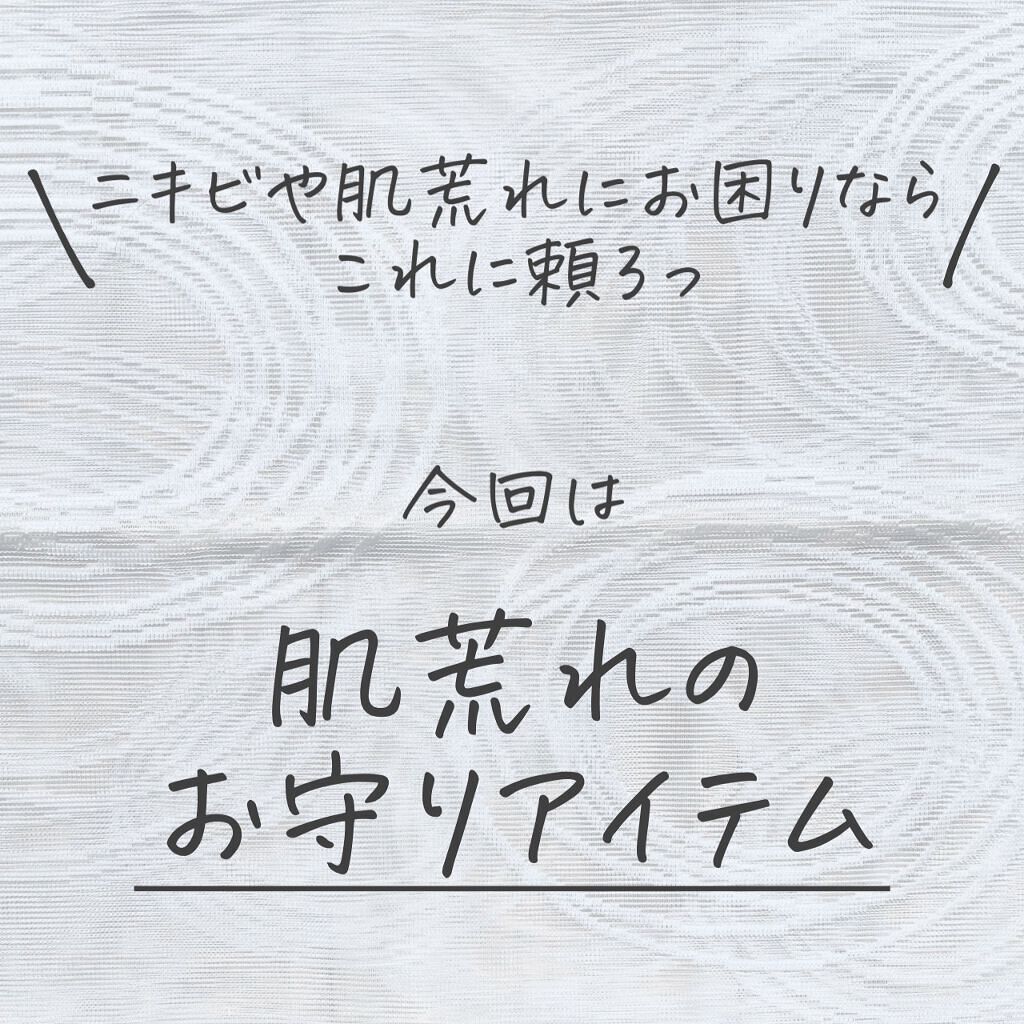 \ ニキビや肌荒れにお困りなら /
これに頼ろっ
今回は
肌荒れの
お守りアイテム